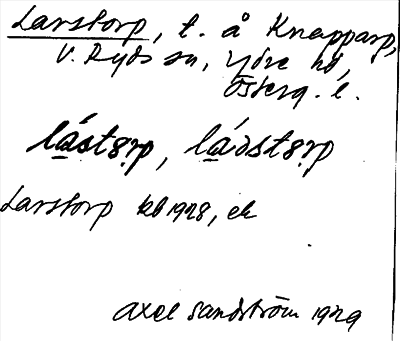 Larstorp, t. å Knapparp,
V. Ryds sn, Ydre hd,
Österg. l.
lástȣrp, láὸstȣrp
Larstorp kb 1928, ek
Axel Sandström 1929